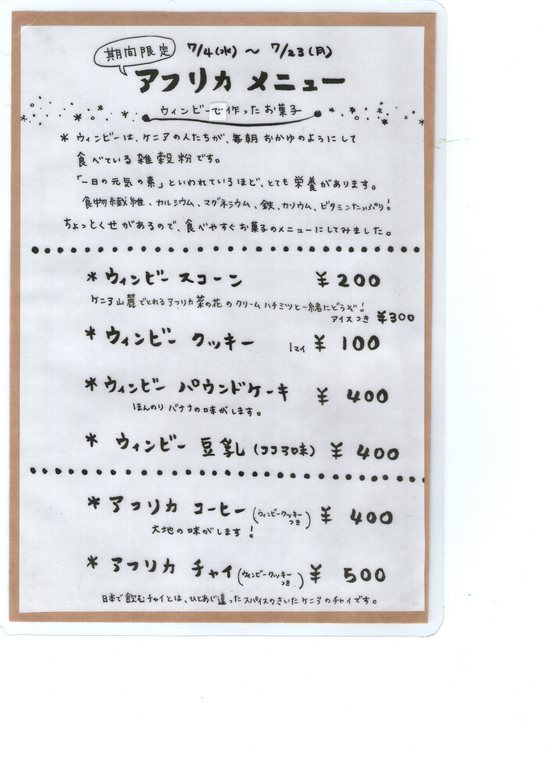 期間限定 7/4(水) 〜 7/23(月)
アフリカ メニュー
ウィンビーで作ったお菓子
* ウィンビーは、ケニアの人たちが、毎朝おかゆのようにして
食べている雑穀粉です。
「一日の元気の素」といわれているほど、とても栄養があります。
食物繊維、カルシウム、マグネシウム、鉄、カリウム、ビタミンたっぷり!
ちょっとくせがあるので、食べやすくお菓子のメニューにしてみました。
* ウィンビー スコーン ¥200
ケニア山麓でとれるアフリカ菜の花のクリームハチミツと一緒にどうぞ!
アイスつき ¥300
* ウィンビー クッキー 1マイ ¥ 100
* ウィンビー パウンドケーキ ¥ 400
ほんのりバナナの味がします。
* ウィンビー 豆乳 (ココア味) ¥ 400
* アフリカ コーヒー (ウィンビークッキーつき) ¥ 400
大地の味がします!
* アフリカ チャイ (ウィンビークッキーつき) ¥ 500
日本で飲むチャイとは、ひとあじ違ったスパイスのきいたケニアのチャイです。